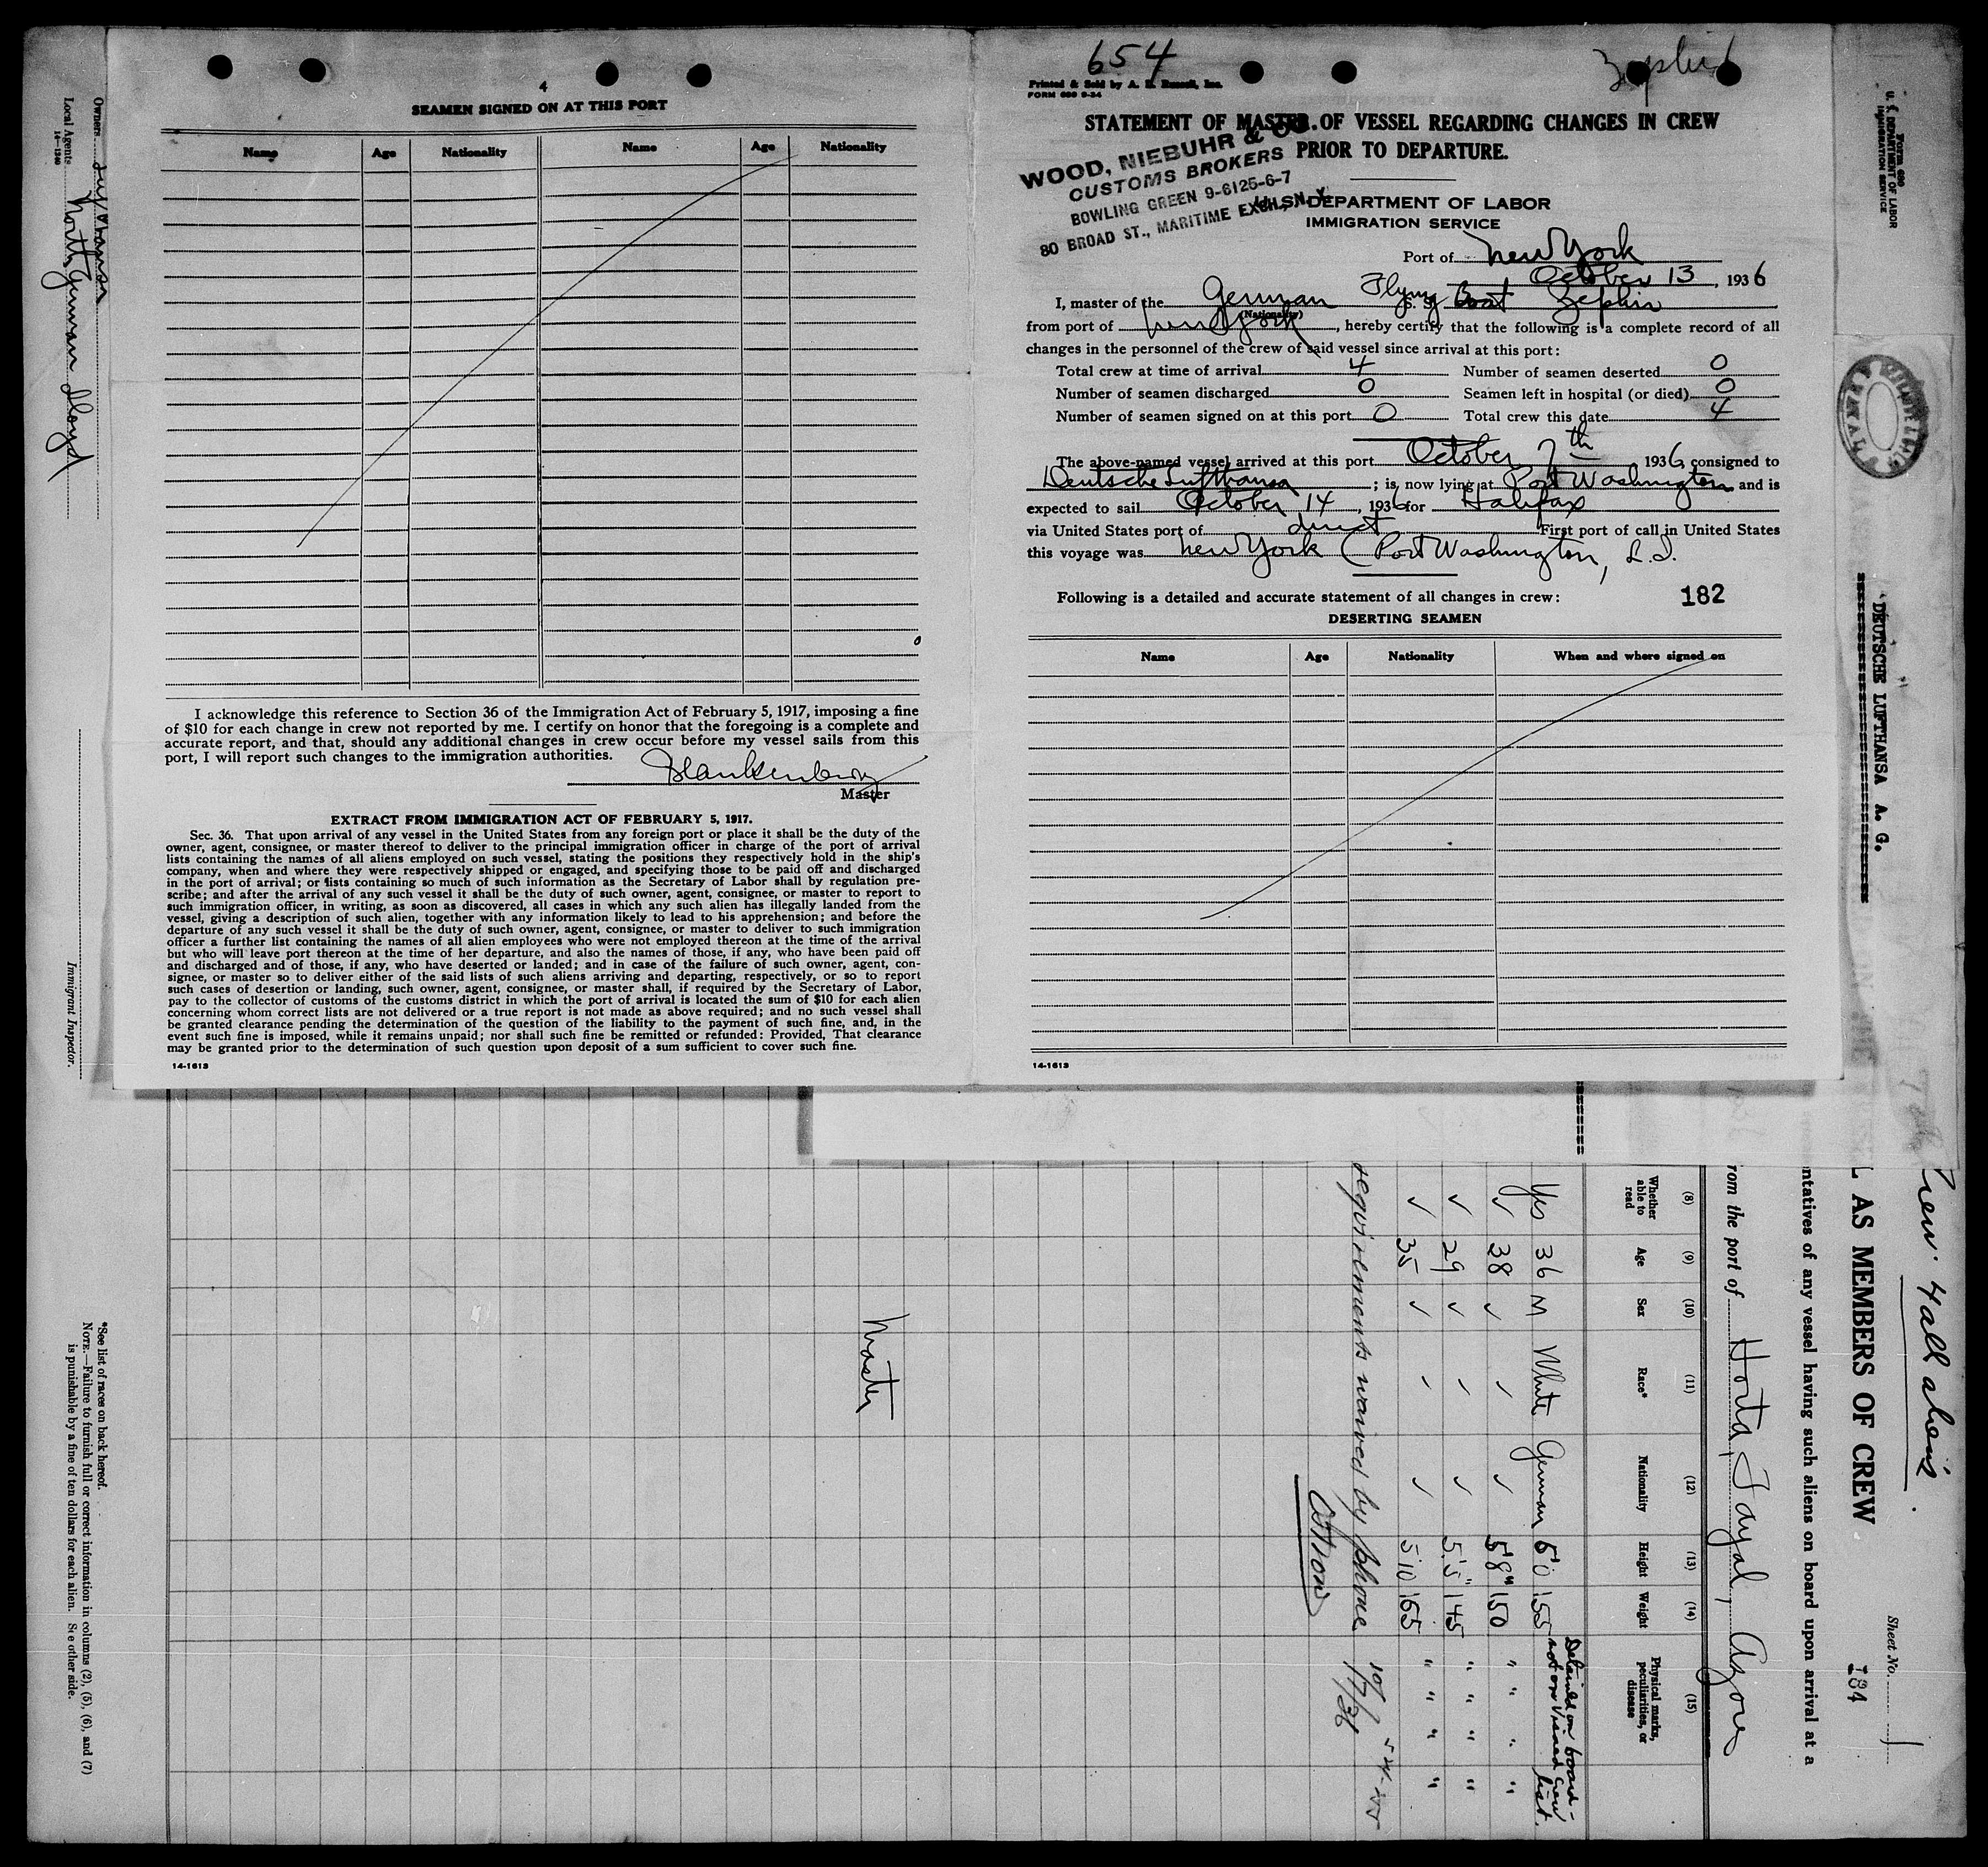 4
SEAMEN SIGNED ON AT THIS PORT
Name Age Nationality Name Age Nationality
I acknowledge this reference to Section 36 of the Immigration Act of February 5, 1917, imposing a fine
of $10 for each change in crew not reported by me. I certify on honor that the foregoing is a complete and
accurate report, and that, should any additional changes in crew occur before my vessel sails from this
port, I will report such changes to the immigration authorities.
Blankenburg
Master
EXTRACT FROM IMMIGRATION ACT OF FEBRUARY 5, 1917.
Sec. 36. That upon arrival of any vessel in the United States from any foreign port or place it shall be the duty of the
owner, agent, consignee, or master thereof to deliver to the principal immigration officer in charge of the port of arrival
lists containing the names of all aliens employed on such vessel, stating the positions they respectively hold in the ship's
company, when and where they were respectively shipped or engaged, and specifying those to be paid off and discharged
in the port of arrival; or lists containing so much of such information as the Secretary of Labor shall by regulation pre-
scribe; and after the arrival of any such vessel it shall be the duty of such owner, agent, consignee, or master to report to
such immigration officer, in writing, as soon as discovered, all cases in which any such alien has illegally landed from the
vessel, giving a description of such alien, together with any information likely to lead to his apprehension; and before the
departure of any such vessel it shall be the duty of such owner, agent, consignee, or master to deliver to such immigration
officer a further list containing the names of all alien employees who were not employed thereon at the time of the arrival
but who will leave port thereon at the time of her departure, and also the names of those, if any, who have been paid off
and discharged and of those, if any, who have deserted or landed; and in case of the failure of such owner, agent, con-
signee, or master so to deliver either of the said lists of such aliens arriving and departing, respectively, or so to report
such cases of desertion or landing, such owner, agent, consignee, or master shall, if required by the Secretary of Labor,
pay to the collector of customs of the customs district in which the port of arrival is located the sum of $10 for each alien
concerning whom correct lists are not delivered or a true report is not made as above required; and no such vessel shall
be granted clearance pending the determination of the question of the liability to the payment of such fine, and, in the
event such fine is imposed, while it remains unpaid; nor shall such fine be remitted or refunded: Provided, That clearance
may be granted prior to the determination of such question upon deposit of a sum sufficient to cover such fine.
14-1613
654
Zephir
Printed & Sold by A. Inc.
FORM 689 9-34
STATEMENT OF MASTER OF VESSEL REGARDING CHANGES IN CREW
PRIOR TO DEPARTURE.
WOOD, NIEBUHR & CO.
CUSTOMS BROKERS
BOWLING GREEN 9-6125-6-7
80 BROAD ST., MARITIME EXCH., N. Y.
U. S. DEPARTMENT OF LABOR
IMMIGRATION SERVICE
Port of New York
October 13, 1936
I, master of the German S. S. Flying Boat Zephir
(Nationality)
from port of New York, hereby certify that the following is a complete record of all
changes in the personnel of the crew of said vessel since arrival at this port:
Total crew at time of arrival 4 Number of seamen deserted 0
Number of seamen discharged 0 Seamen left in hospital (or died) 0
Number of seamen signed on at this port 0 Total crew this date 4
The above-named vessel arrived at this port October 7th 1936, consigned to
Deutsche Lufthansa; is now lying at Port Washington and is
expected to sail October 14, 1936 for Halifax
via United States port of direct First port of call in United States
this voyage was New York (Port Washington, L.I.
Following is a detailed and accurate statement of all changes in crew: 182
DESERTING SEAMEN
Name Age Nationality When and where signed on
14-1613
Owners Lufthansa
Local Agents North German Lloyd
14-1240
Immigrant Inspector.
*See list of races on back hereof.
NOTE.—Failure to furnish full or correct information in columns (2), (5), (6), and (7)
is punishable by a fine of ten dollars for each alien. See other side.
Form 689
U. S. DEPARTMENT OF LABOR
IMMIGRATION SERVICE
DEUTSCHE LUFTHANSA A. G.
Crew 4 all aliens.
Sheet No. 1
184
L AS MEMBERS OF CREW
ntatives of any vessel having such aliens on board upon arrival at a
rom the port of Horta, Fayal, Azores
(8) (9) (10) (11) (12) (13) (14) (15)
Whether able to read Age Sex Race* Nationality Height Weight Physical marks, peculiarities, or disease
Yes 36 M White German 155 Detained on board- not on visaed crew list.
✓ 38 ✓ ✓ ✓ 5'8" 150 " " " "
✓ 29 ✓ ✓ ✓ 5'5" 145 " " " "
✓ 35 ✓ ✓ ✓ 5'10 165 " " " "
requirements waived by phone
Master